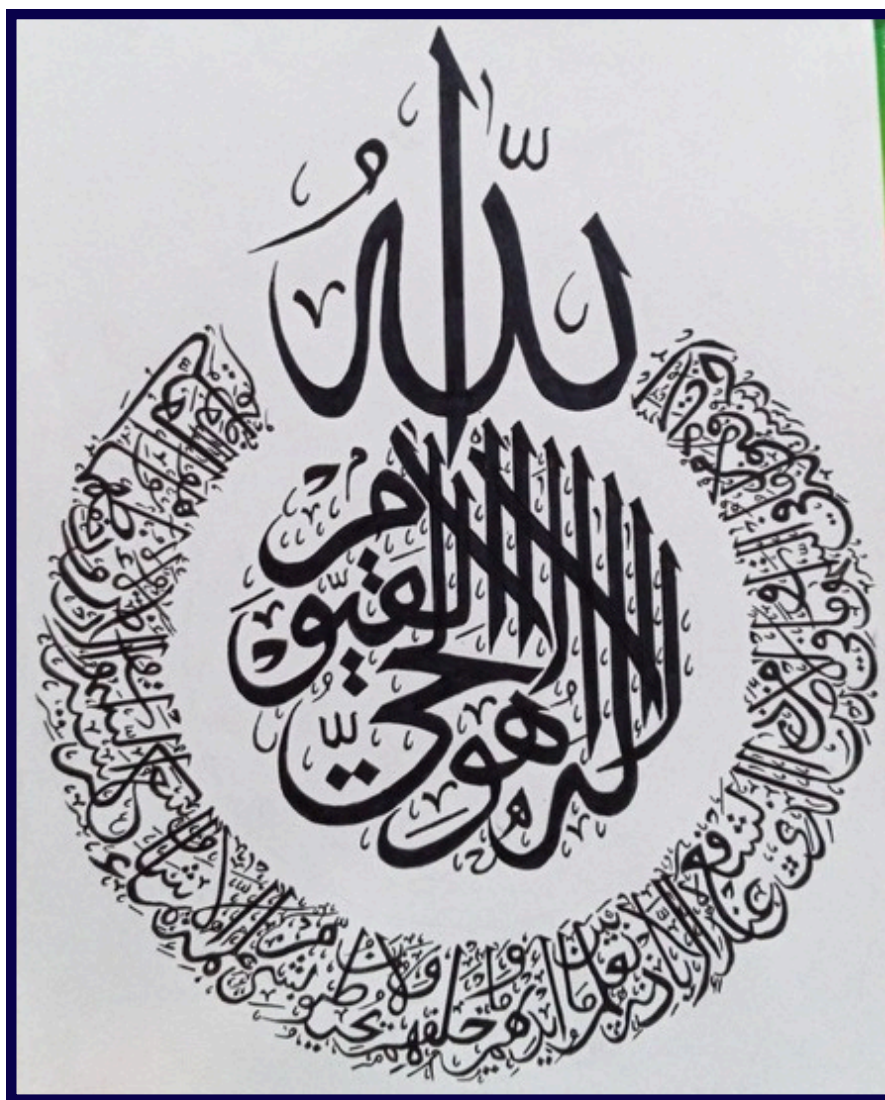 اللهُ
لا اله الا هو الحيّ القيّوم
لا تأخذه سنة ولا نوم له ما في السموات وما في الارض من ذا الذي يشفع عنده الا باذنه يعلم ما بين أيديهم وما خلفهم ولا يحيطون بشيء من علمه الا بما شاء وسع كرسيه السموات والارض ولا يؤده حفظهما وهو العلي العظيم